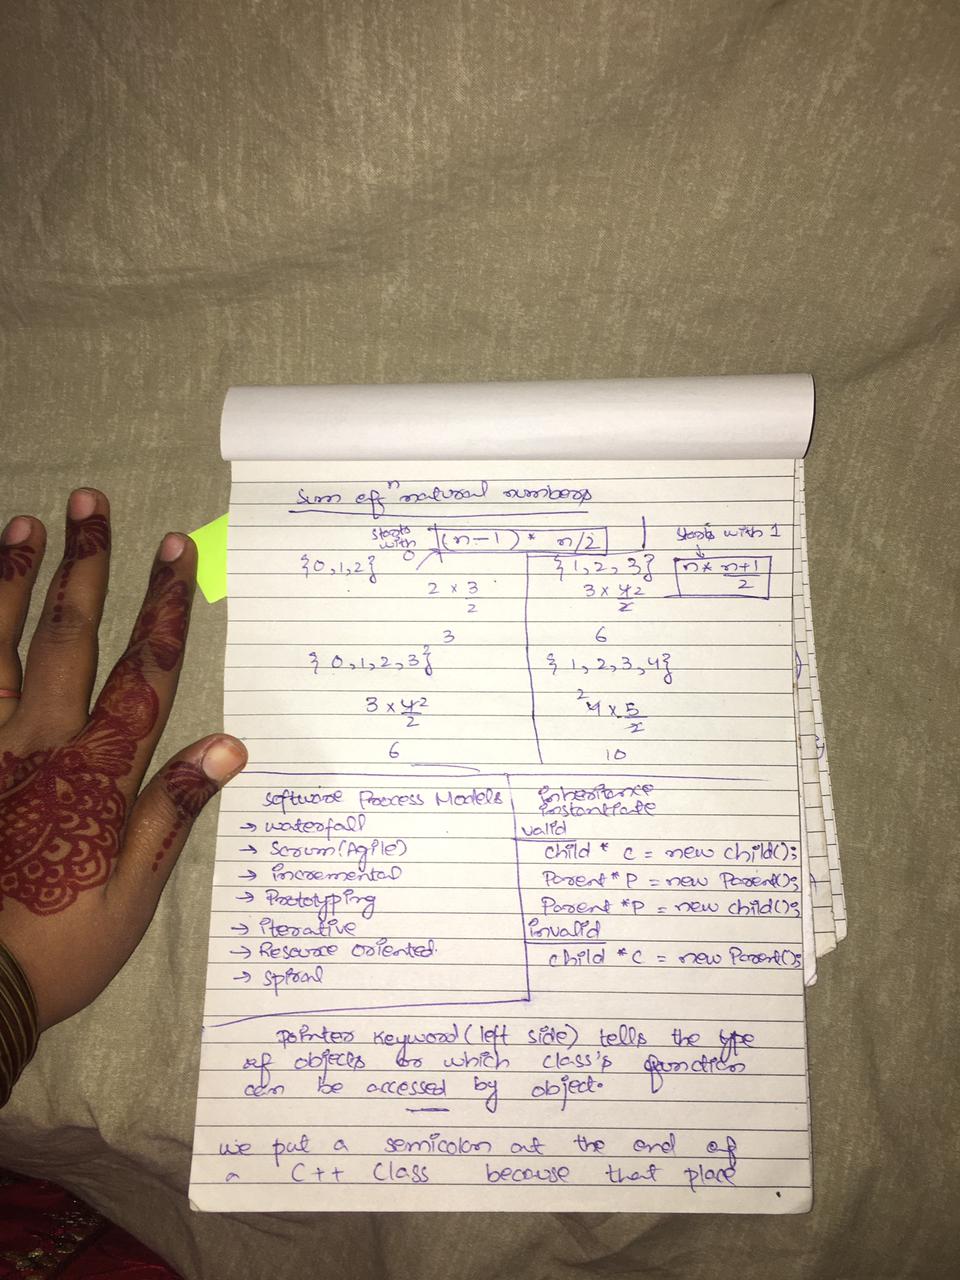 Sum of n natural numbers
starts with 0 (n-1) * n/2
starts with 1
n * n+1/2
{0,1,2}
2 x 3/2
3
{0,1,2,3}
3 x 4 2/2
6
{1,2,3}
3 x 4 2/2
6
{1,2,3,4}
2 4 x 5/2
10
Software Process Models
→ waterfall
→ Scrum (Agile)
→ incremental
→ Prototyping
→ iterative
→ Resource oriented.
→ spiral
inheritance
instantiate
valid
child * c = new child();
Parent * p = new Parent();
Parent *p = new child();
invalid
child *c = new Parent();
pointer keyword (left side) tells the type
of objects or which class's function
can be accessed by object.
we put a semicolon at the end of
a C++ class because that place